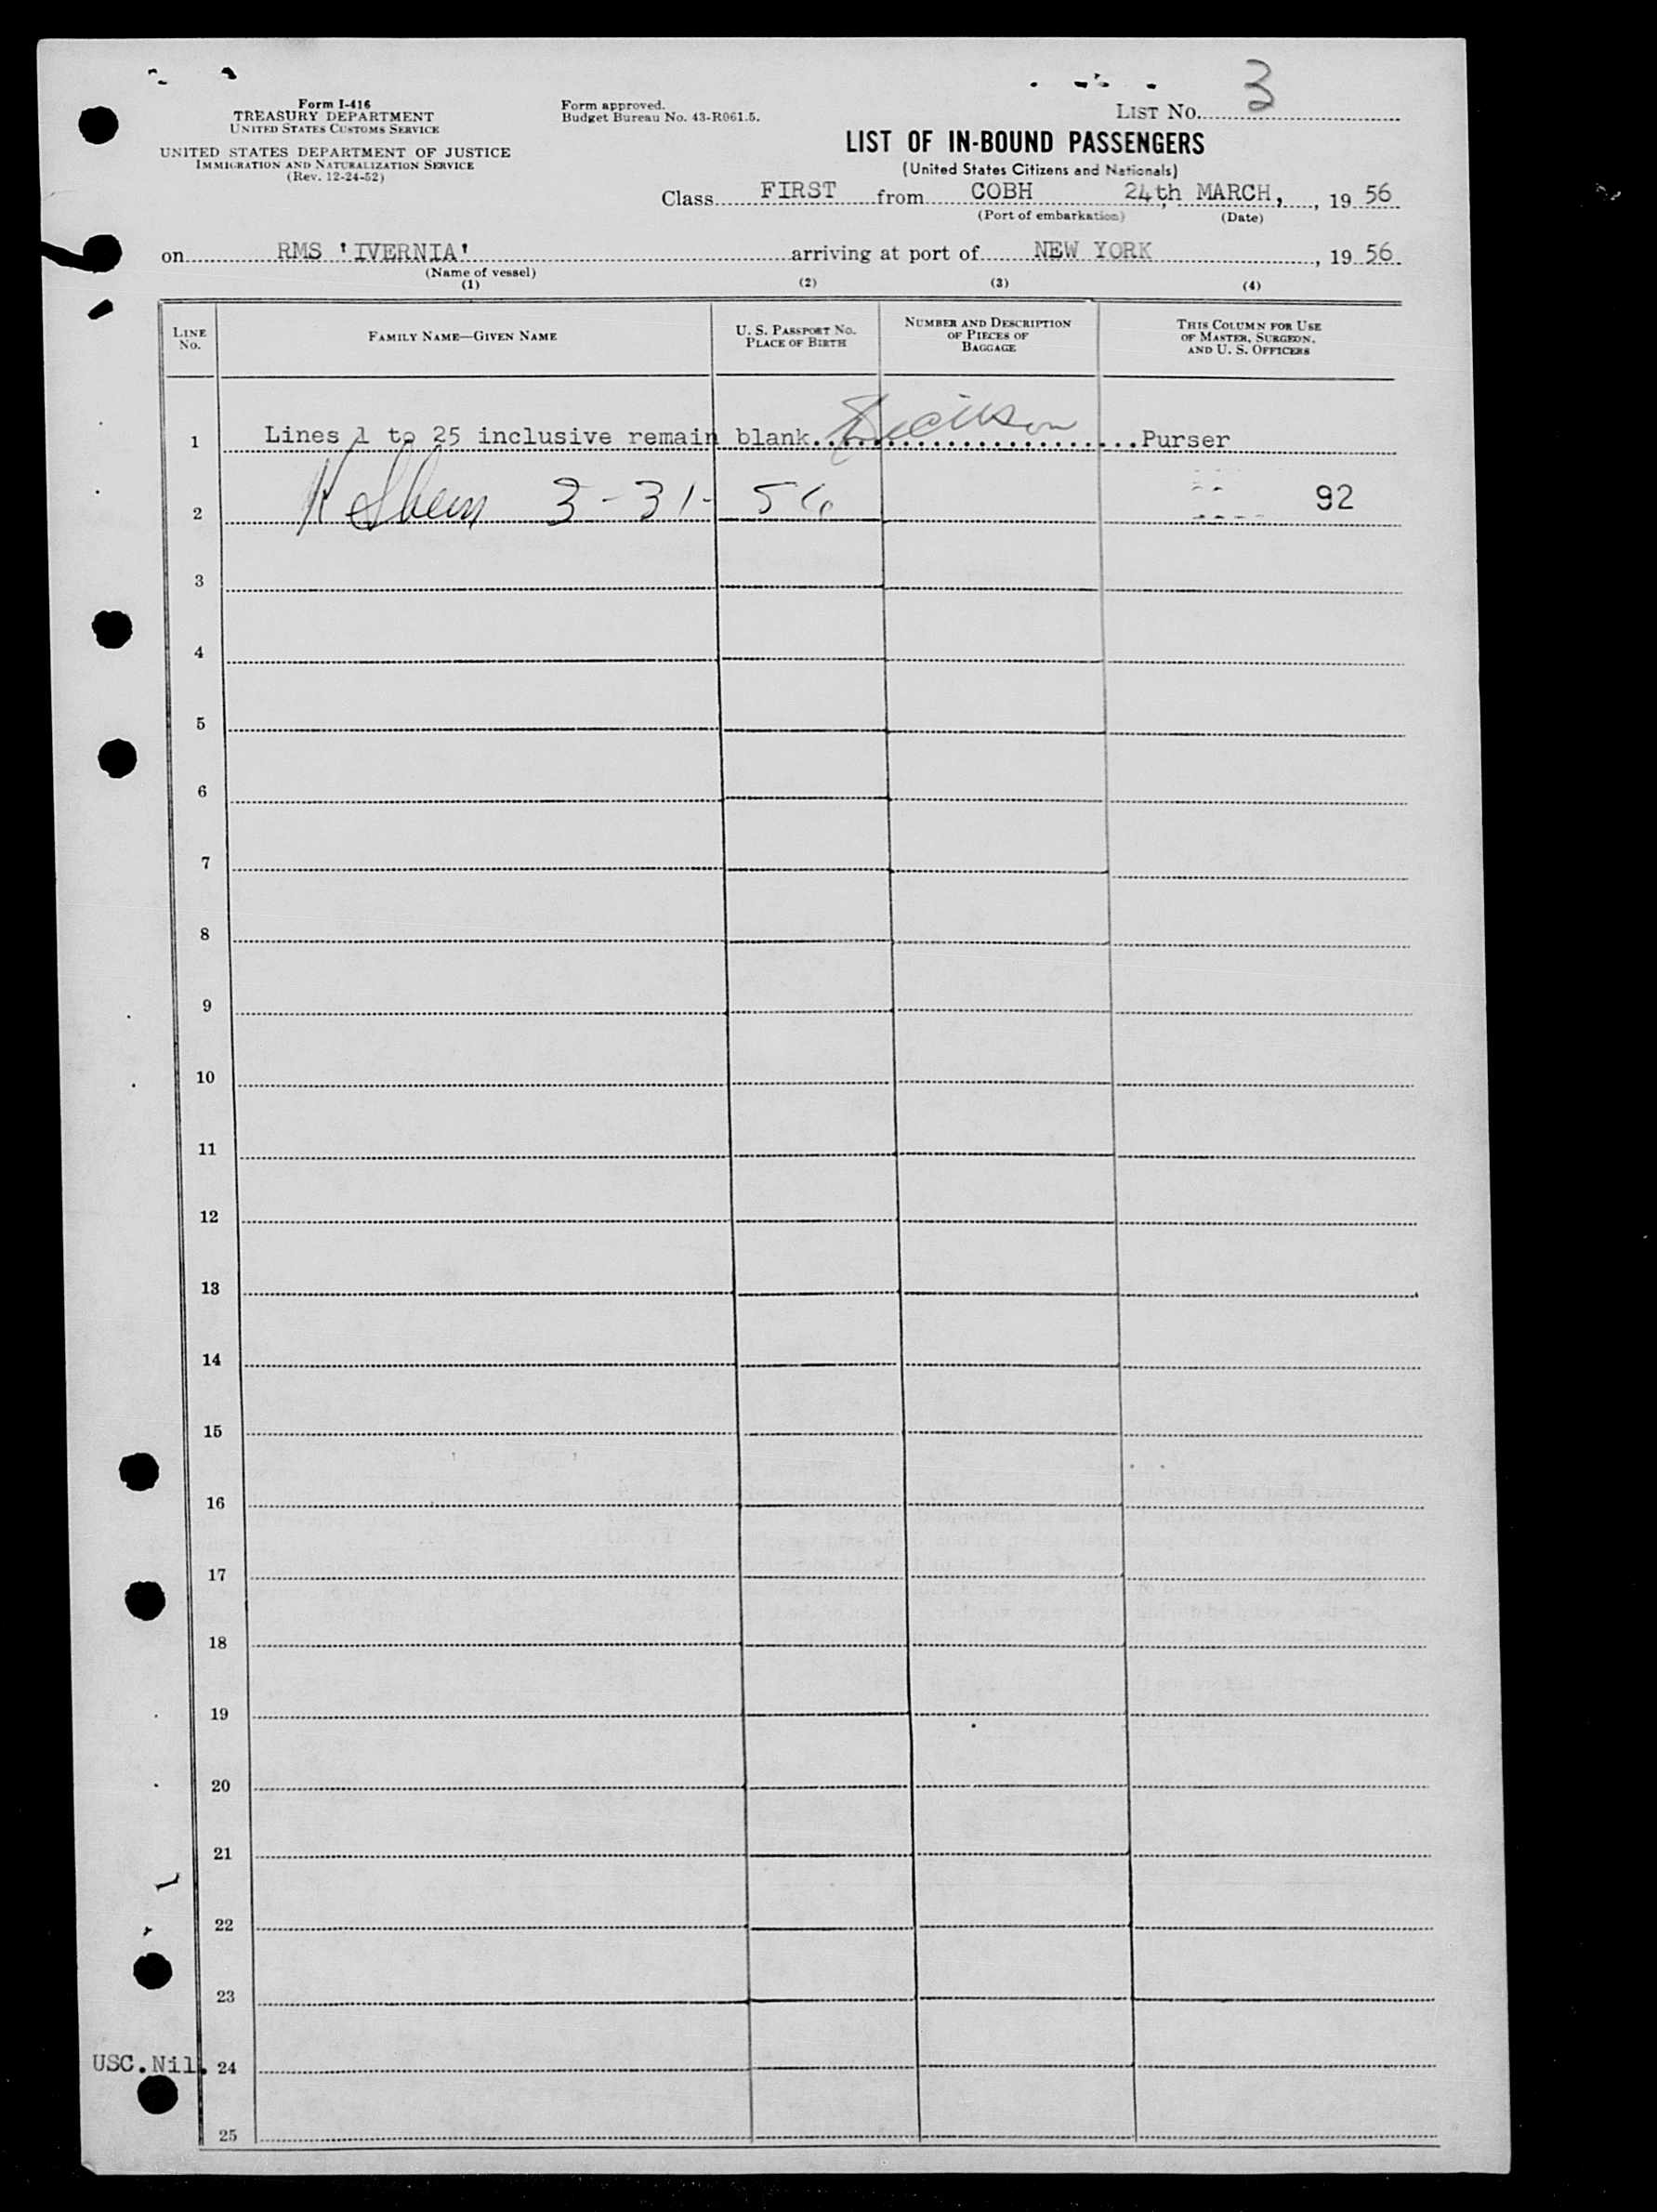 Form I-416
TREASURY DEPARTMENT
UNITED STATES CUSTOMS SERVICE
UNITED STATES DEPARTMENT OF JUSTICE
IMMIGRATION AND NATURALIZATION SERVICE
(Rev. 12-24-52)
Form approved.
Budget Bureau No. 43-R061.5.
LIST No. 3
LIST OF IN-BOUND PASSENGERS
(United States Citizens and Nationals)
Class FIRST from COBH 24th MARCH, , 19 56
(Port of embarkation) (Date)
on RMS 'IVERNIA' arriving at port of NEW YORK , 19 56
(Name of vessel)
(1) (2) (3) (4)
LINE No. FAMILY NAME—GIVEN NAME U. S. PASSPORT No. PLACE OF BIRTH NUMBER AND DESCRIPTION OF PIECES OF BAGGAGE THIS COLUMN FOR USE OF MASTER, SURGEON, AND U. S. OFFICERS
1 Lines 1 to 25 inclusive remain blank. Purser
2 3-31-56 92
3
4
5
6
7
8
9
10
11
12
13
14
15
16
17
18
19
20
21
22
23
USC.Nil. 24
25